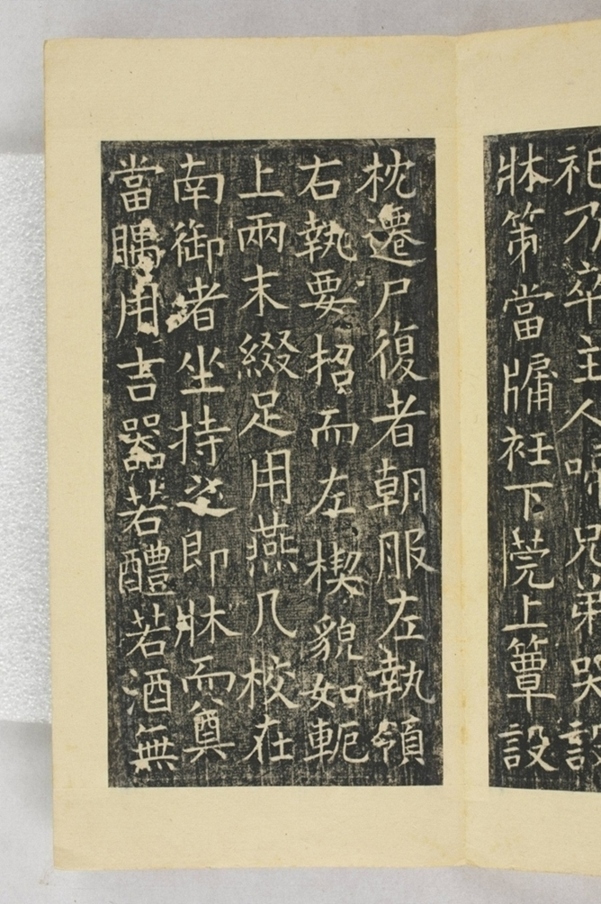 祀乃卒主人啼兄弟哭設
牀笫當牖衽下莞上簟設
枕遷尸復者朝服左執領
右執要招而左楔貌如軛
上兩末綴足用燕几校在
南御者坐持之即牀而奠
當腢用吉器若醴若酒無